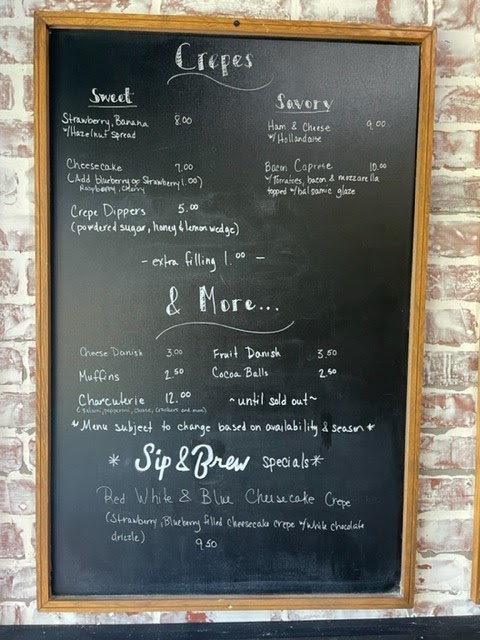 Crepes
Sweet
Strawberry, Banana 8.00
w/Hazelnut spread
Cheesecake 7.00
(Add blueberry or Strawberry 1.00)
Raspberry, Cherry
Crepe Dippers 5.00
(powdered sugar, honey & lemon wedge)
Savory
Ham & Cheese 9.00
w/Hollandaise
Bacon Caprese 10.00
w/Tomatoes, bacon & mozzarella
topped w/balsamic glaze
- extra filling 1.00 -
& More...
Cheese Danish 3.00 Fruit Danish 3.50
Muffins 2.50 Cocoa Balls 2.50
Charcuterie 12.00 ~until sold out~
(Salami, pepperoni, cheese, crackers and more)
*Menu subject to change based on availability & season*
* Sip & Brew specials*
Red White & Blue Cheesecake Crepe
(Strawberry, Blueberry filled cheesecake crepe w/white chocolate
drizzle) 9.50